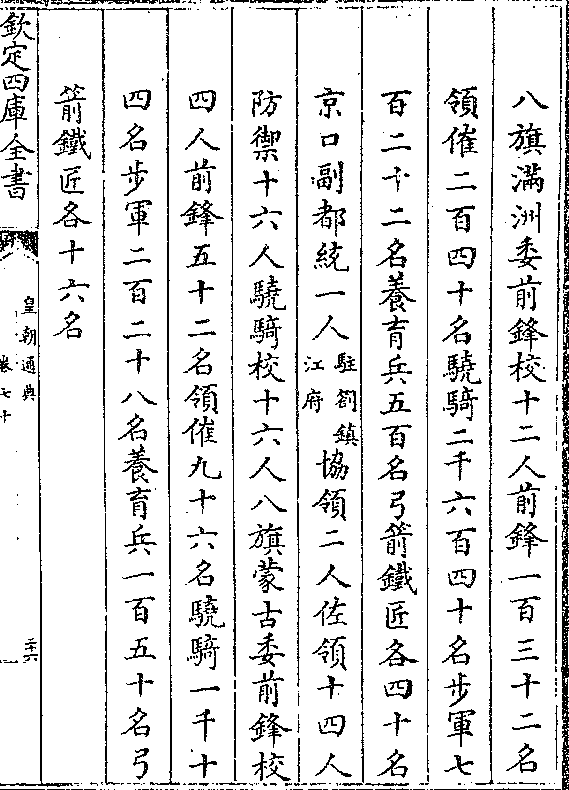 八旗滿洲委前鋒校十二人前鋒一百三十二名
領催二百四十名驍騎二千六百四十名步軍七
百二十二名養育兵五百名弓箭鐵匠各四十名
京口副都統一人駐劄鎮江府協領二人佐領十四人
防禦十六人驍騎校十六人八旗蒙古委前鋒校
四人前鋒五十二名領催九十六名驍騎一千十
四名步軍二百二十八名養育兵一百五十名弓
箭鐵匠各十六名
欽定四庫全書
皇朝通典
卷七十
二十六